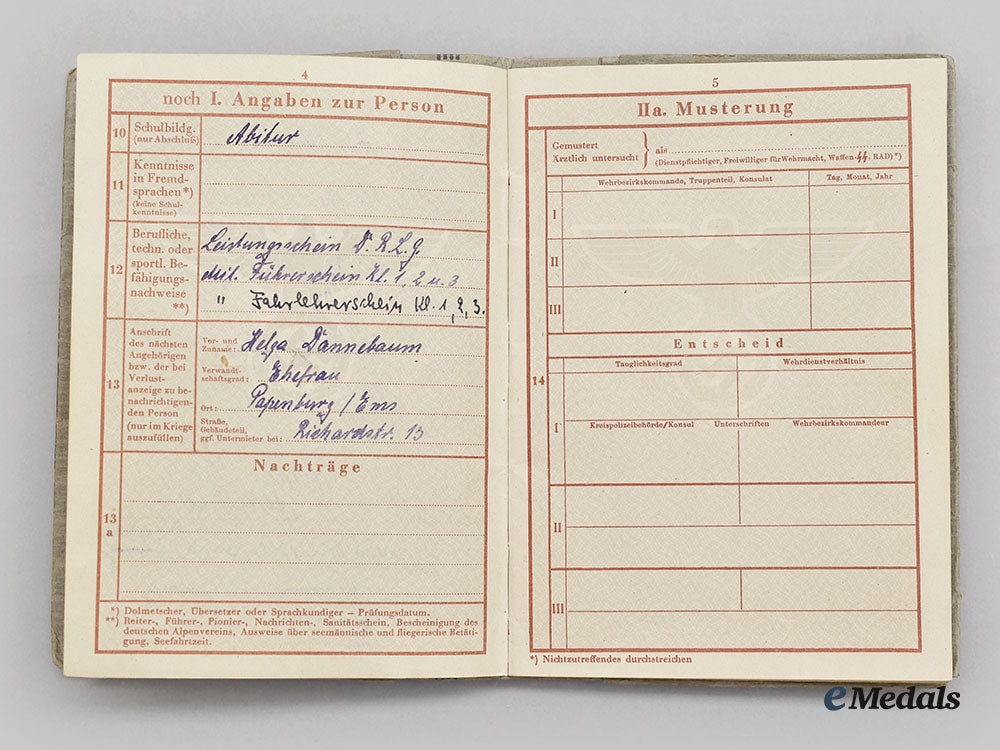 4
noch I. Angaben zur Person
10
Schulbildg.
(nur Abschluß)
Abitur
11
Kenntnisse
in Fremd-
sprachen*)
(keine Schul-
kenntnisse)
12
Berufliche,
techn. oder
sportl. Be-
fähigungs-
nachweise
**)
Leistungsschein D.R.L.G.
Mil. Führerschein Kl. 1, 2 u. 3
" Fahrlehrerschein Kl. 1, 2, 3.
13
Anschrift
des nächsten
Angehörigen
bzw. der bei
Verlust-
anzeige zu be-
nachrichtigen-
den Person
(nur im Kriege
auszufüllen)
Vor- und
Zuname: Helga Dannebaum
Verwandt-
schaftsgrad: Ehefrau
Ort: Papenburg/Ems
Straße,
Gebäudeteil,
ggf. Untermieter bei: Richardstr. 13
Nachträge
13
a
*) Dolmetscher, Übersetzer oder Sprachkundiger – Prüfungsdatum.
**) Reiter-, Führer-, Pionier-, Nachrichten-, Sanitätsschein, Bescheinigung des
deutschen Alpenvereins, Ausweise über seemännische und fliegerische Betäti-
gung, Seefahrtzeit.
5
IIa. Musterung
Gemustert
Ärztlich untersucht
als
(Dienstpflichtiger, Freiwilliger für Wehrmacht, Waffen-SS, RAD)*)
Wehrbezirkskommando, Truppenteil, Konsulat
Tag, Monat, Jahr
I
II
III
Entscheid
14
Tauglichkeitsgrad
Wehrdienstverhältnis
I
Kreispolizeibehörde/Konsul Unterschriften Wehrbezirkskommandeur
II
III
*) Nichtzutreffendes durchstreichen
eMedals